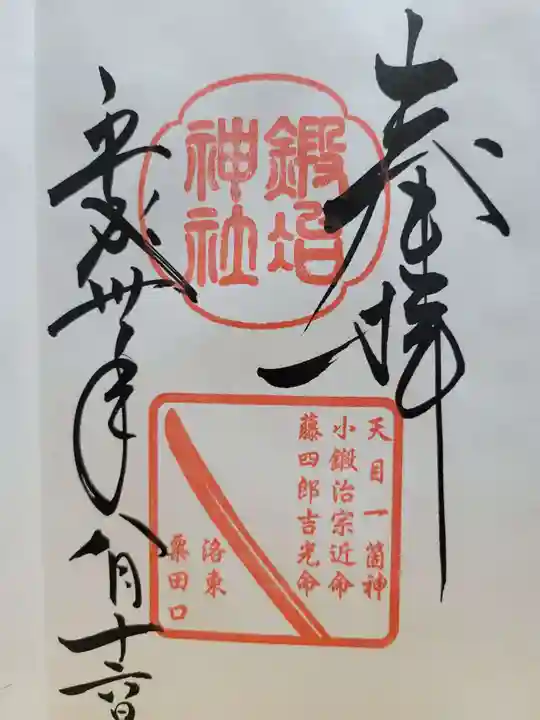 奉拝
鍛冶
神社
天目一箇神
小鍛冶宗近命
藤四郎吉光命
洛東
粟田口
平成卅年八月十六日